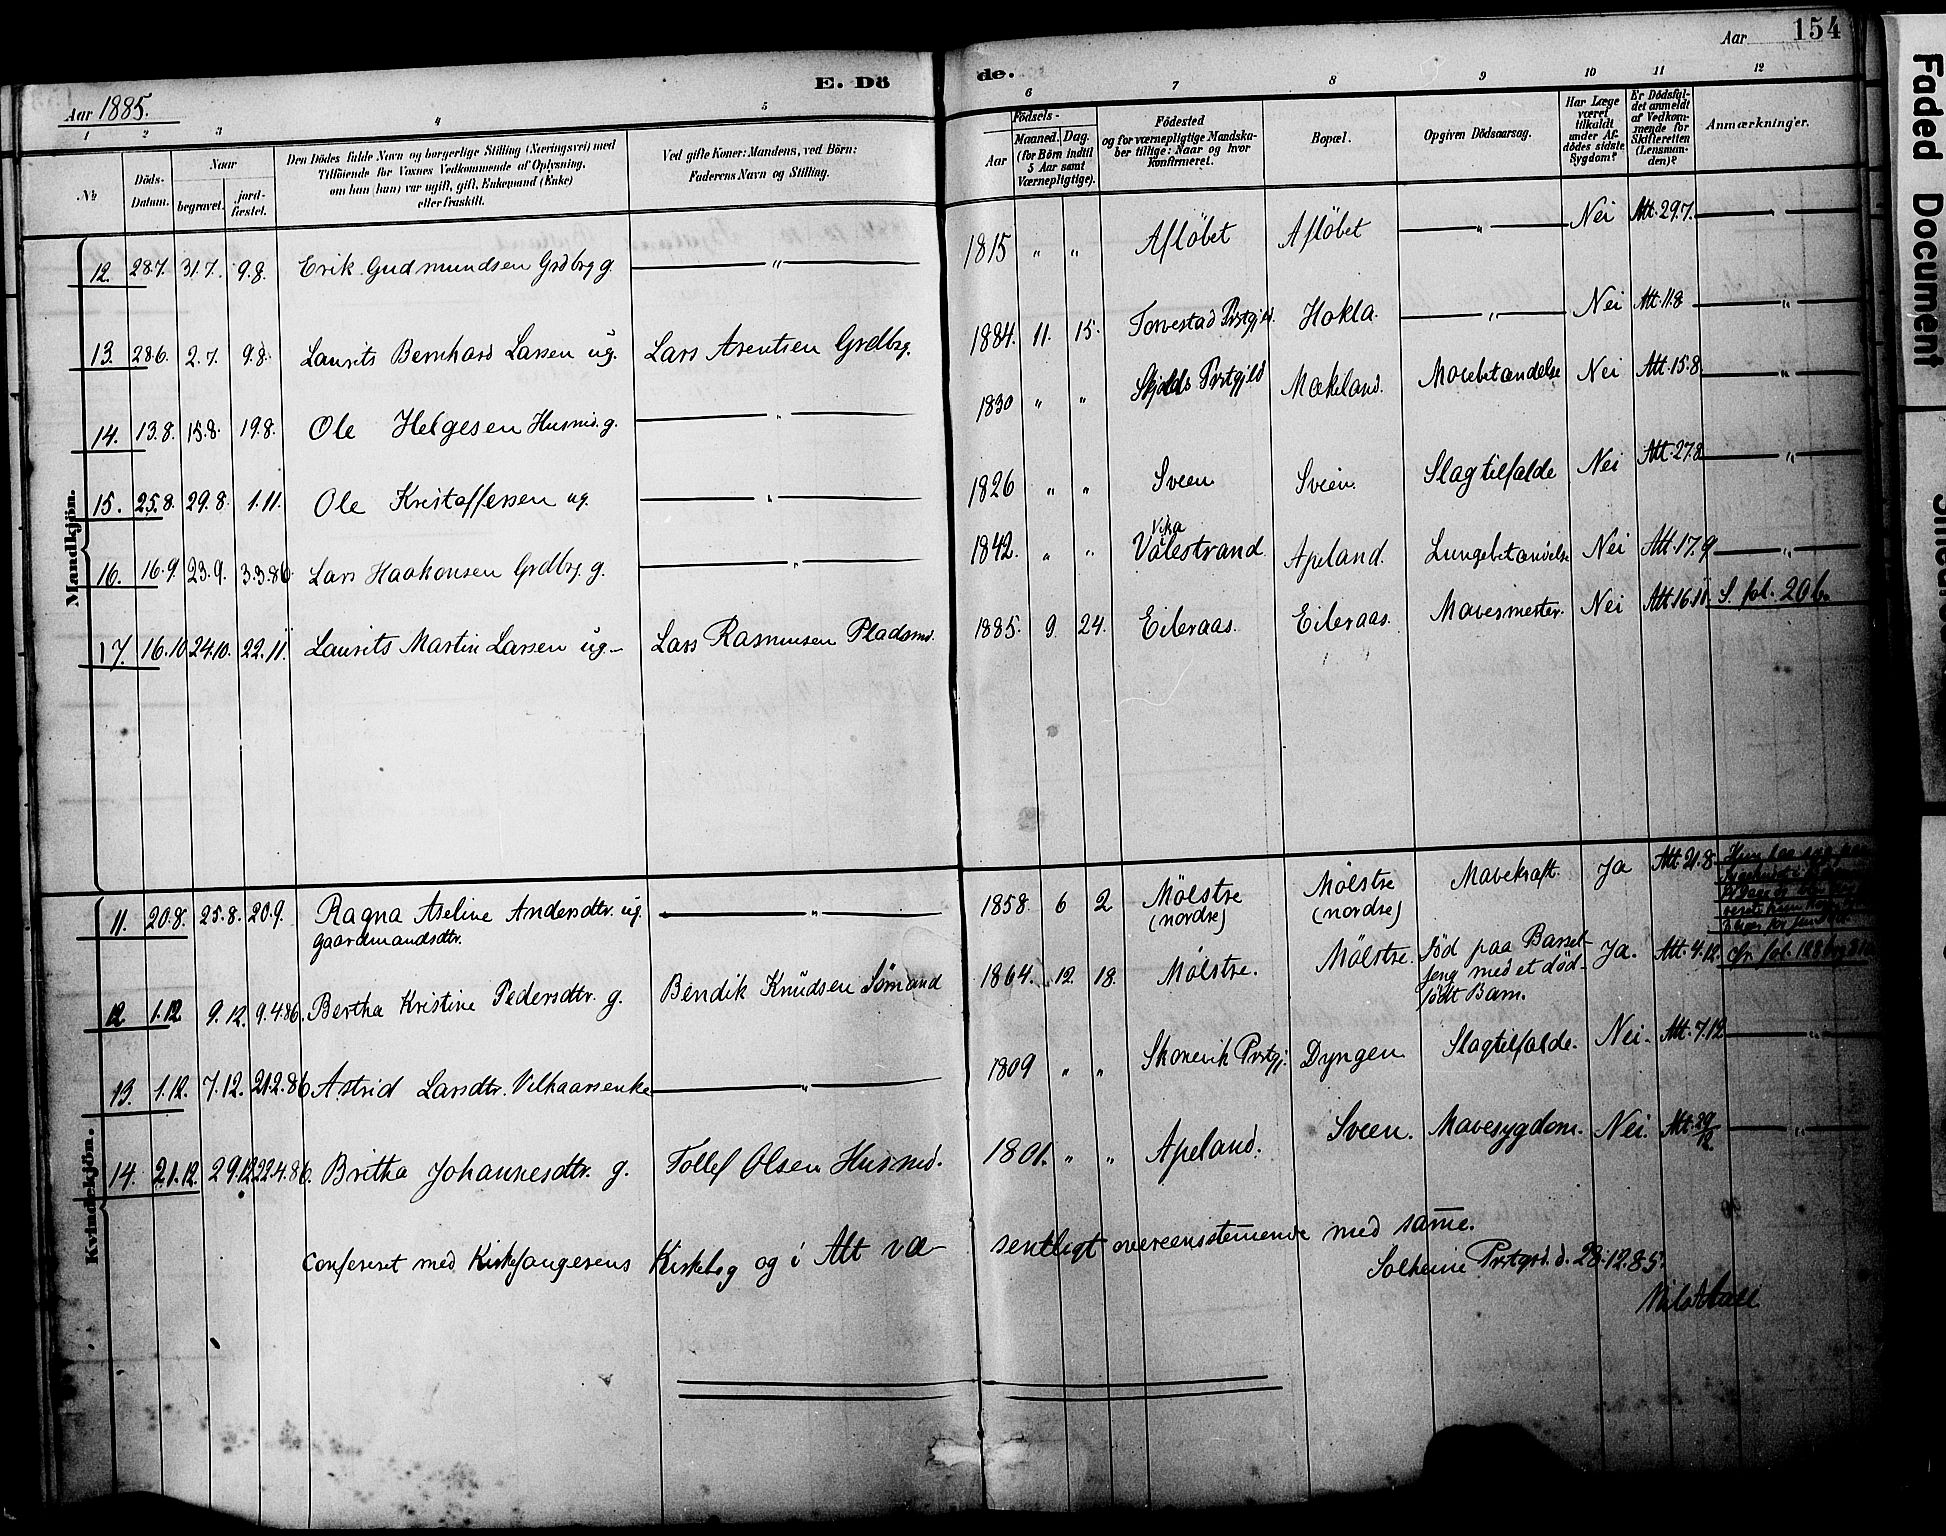 Aar 1885.
E. Döde.
Aar 154
1 2 3 4 5 6 7 8 9 10 11 12
No.
Döds-Datum.
Naar
begravet.
jord-fæstet.
Den Dödes fulde Navn og borgerlige Stilling (Næringsvei) med
Tilföiende for Voxnes Vedkommende af Oplysning,
om han (hun) var ugift, gift, Enkemand (Enke)
eller fraskilt.
Ved gifte Koner: Mandens, ved Börn:
Faderens Navn og Stilling.
Födsels-
Aar
Maaned. Dag.
(for Börn indtil
5 Aar samt
Værnepligtige).
Födested
og for værnepligtige Mandska-
ber tillige: Naar og hvor
konfirmeret.
Bopæl.
Opgiven Dödsaarsag.
Har Læge
været
tilkaldt
under Af-
dödes sidste
Sygdom?
Er Dödsfal-
det anmeldt
af Vedkom-
mende for
Skifteretten
(Lensman-
den)?
Anmærkninger.
Mandkjön.
12. 28.7. 31.7. 9.8. Erik Gudmundsen Grdbrg g. — " — 1815 " " Aflöbet Aflöbet — " — Nei Att. 29.7. — " —
13. 28.6. 2.7. 9.8. Laurits Bernhard Larsen ug. Lars Arentsen Grdbrg. 1884. 11. 15. Torvestad Prstgjld. Hokla. — " — Nei Att. 11.8. — " —
14. 13.8. 15.8. 19.8. Ole Helgesen Husmd. g. — " — 1830 " " Skjolds Prstgjld Mækeland. Mavebetændelse Nei Att. 15.8. — " —
15. 25.8. 29.8. 1.11. Ole Kristoffersen ug. — " — 1826 " " Sveen Sveen. Slagtilfælde Nei Att. 27.8. — " —
16. 16.9. 23.9. 3.3.86. Lars Haakonsen Grdbrg. g. — " — 1842. " " Vika Valestrand Apeland. Lungebetændelse Nei Att. 17.9 — " —
17. 16.10 24.10. 22.11. Laurits Martin Larsen ug. Lars Rasmusen Pladsmd. 1885. 9. 24. Eileraas. Eileraas. Mavesmerter. Nei Att. 16.11. S. fol. 20 b.
Kvindekjön.
11. 20.8. 25.8. 20.9. Ragna Aseline Andersdtr. ug.
gaardmandsdtr. — " — 1858. 6 2 Mölstre
(nordre) Mölstre
(nordre) Mavekræft. Ja Att. 21.8.
12. 1.12. 9.12. 9.4.86. Bertha Kristine Pedersdtr. g. Bendik Knudsen Sömand 1864. 12. 18. Mölstre. Mölstre. Död paa Barsel-
seng med et död-
födt Barn. Ja. Att. 4.12.
13. 1.12. 7.12. 21.2.86. Astrid Larsdtr. Vilkaarsenke — " — 1809 " " Skonevik Prstgj. Dyngen. Slagtilfælde. Nei. Att. 7.12 — " —
14. 21.12. 29.12 22.4.86. Britha Johannesdtr. g. Tollef Olsen Husmd. 1801. " " Apeland. Sveen. Mavesygdom. Nei. Att. 29/12. — " —
Confereret med Kirkesangerens Kirkebog og i Alt væ-
sentligt overeensstemende med same.
Solheim Prstgrd. d. 28.12.85.